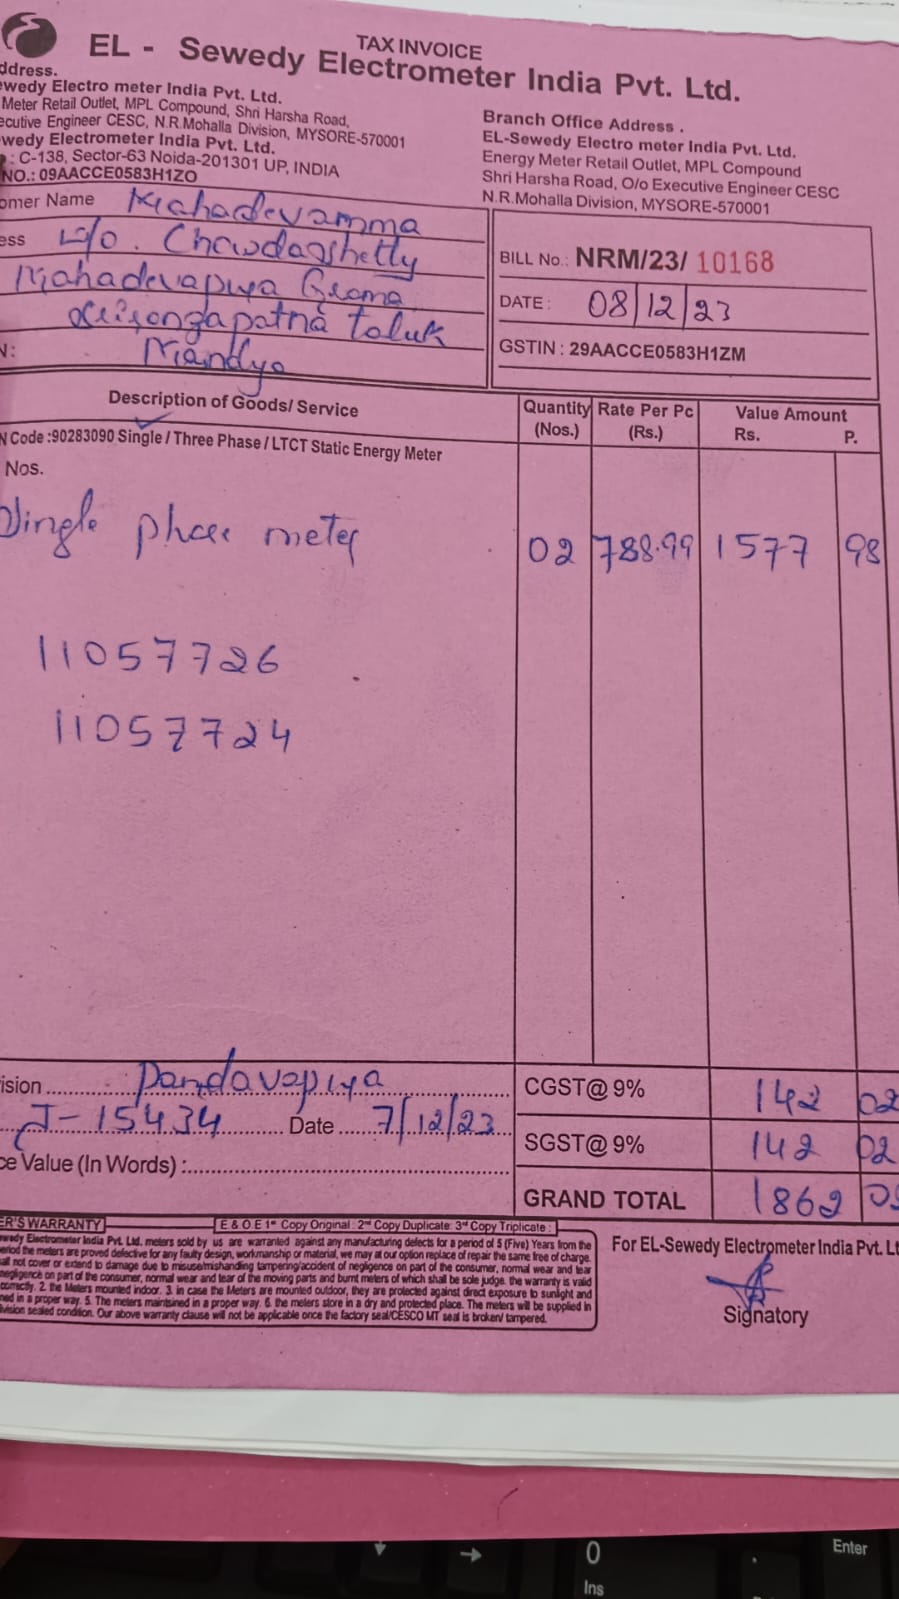 TAX INVOICE
EL - Sewedy Electrometer India Pvt. Ltd.
ddress.
ewedy Electro meter India Pvt. Ltd.
Meter Retail Outlet, MPL Compound, Shri Harsha Road,
ecutive Engineer CESC, N.R.Mohalla Division, MYSORE-570001
wedy Electrometer India Pvt. Ltd.
: C-138, Sector-63 Noida-201301 UP, INDIA
NO.: 09AACCE0583H1ZO
Branch Office Address .
EL-Sewedy Electro meter India Pvt. Ltd.
Energy Meter Retail Outlet, MPL Compound
Shri Harsha Road, O/o Executive Engineer CESC
N.R.Mohalla Division, MYSORE-570001
omer Name Mahadevamma
ess W/o. Chowdashetty
Mahadevapura Grama
taluk
N: Mandya
BILL No.: NRM/23/ 10168
DATE: 08/12/23
GSTIN : 29AACCE0583H1ZM
Description of Goods/ Service Quantity (Nos.) Rate Per Pc (Rs.) Value Amount Rs. P.
N Code :90283090 Single / Three Phase / LTCT Static Energy Meter
Nos.
Single phase meter 02 788.99 1577 98
11057726
11057724
ision Pandavapura
J-15434 Date 7/12/23
ce Value (In Words) :
CGST@ 9% 142 02
SGST@ 9% 142 02
GRAND TOTAL 1862
ER'S WARRANTY E & O E 1st Copy Original : 2nd Copy Duplicate 3rd Copy Triplicate :
ewedy Electrometer India Pvt. Ltd. meters sold by us are warranted against any manufacturing defects for a period of 5 (Five) Years from the
eriod the meters are proved defective for any faulty design, workmanship or material, we may at our option replace of repair the same free of charge.
all not cover or extend to damage due to misuse/mishandling tampering/accident of negligence on part of the consumer, normal wear and tear
negligence on part of the consumer, normal wear and tear of the moving parts and burnt meters of which shall be sole judge. the warranty is valid
correctly. 2. the Meters mounted indoor. 3. in case the Meters are mounted outdoor, they are protected against direct exposure to sunlight and
ned in a proper way. 5. The meters maintained in a proper way. 6. the meters store in a dry and protected place. The meters will be supplied in
ivision sealed condition. Our above warranty clause will not be applicable once the factory seal/CESCO MT seal is broken/ tampered.
For EL-Sewedy Electrometer India Pvt. Lt
Signatory
0
Ins
Enter